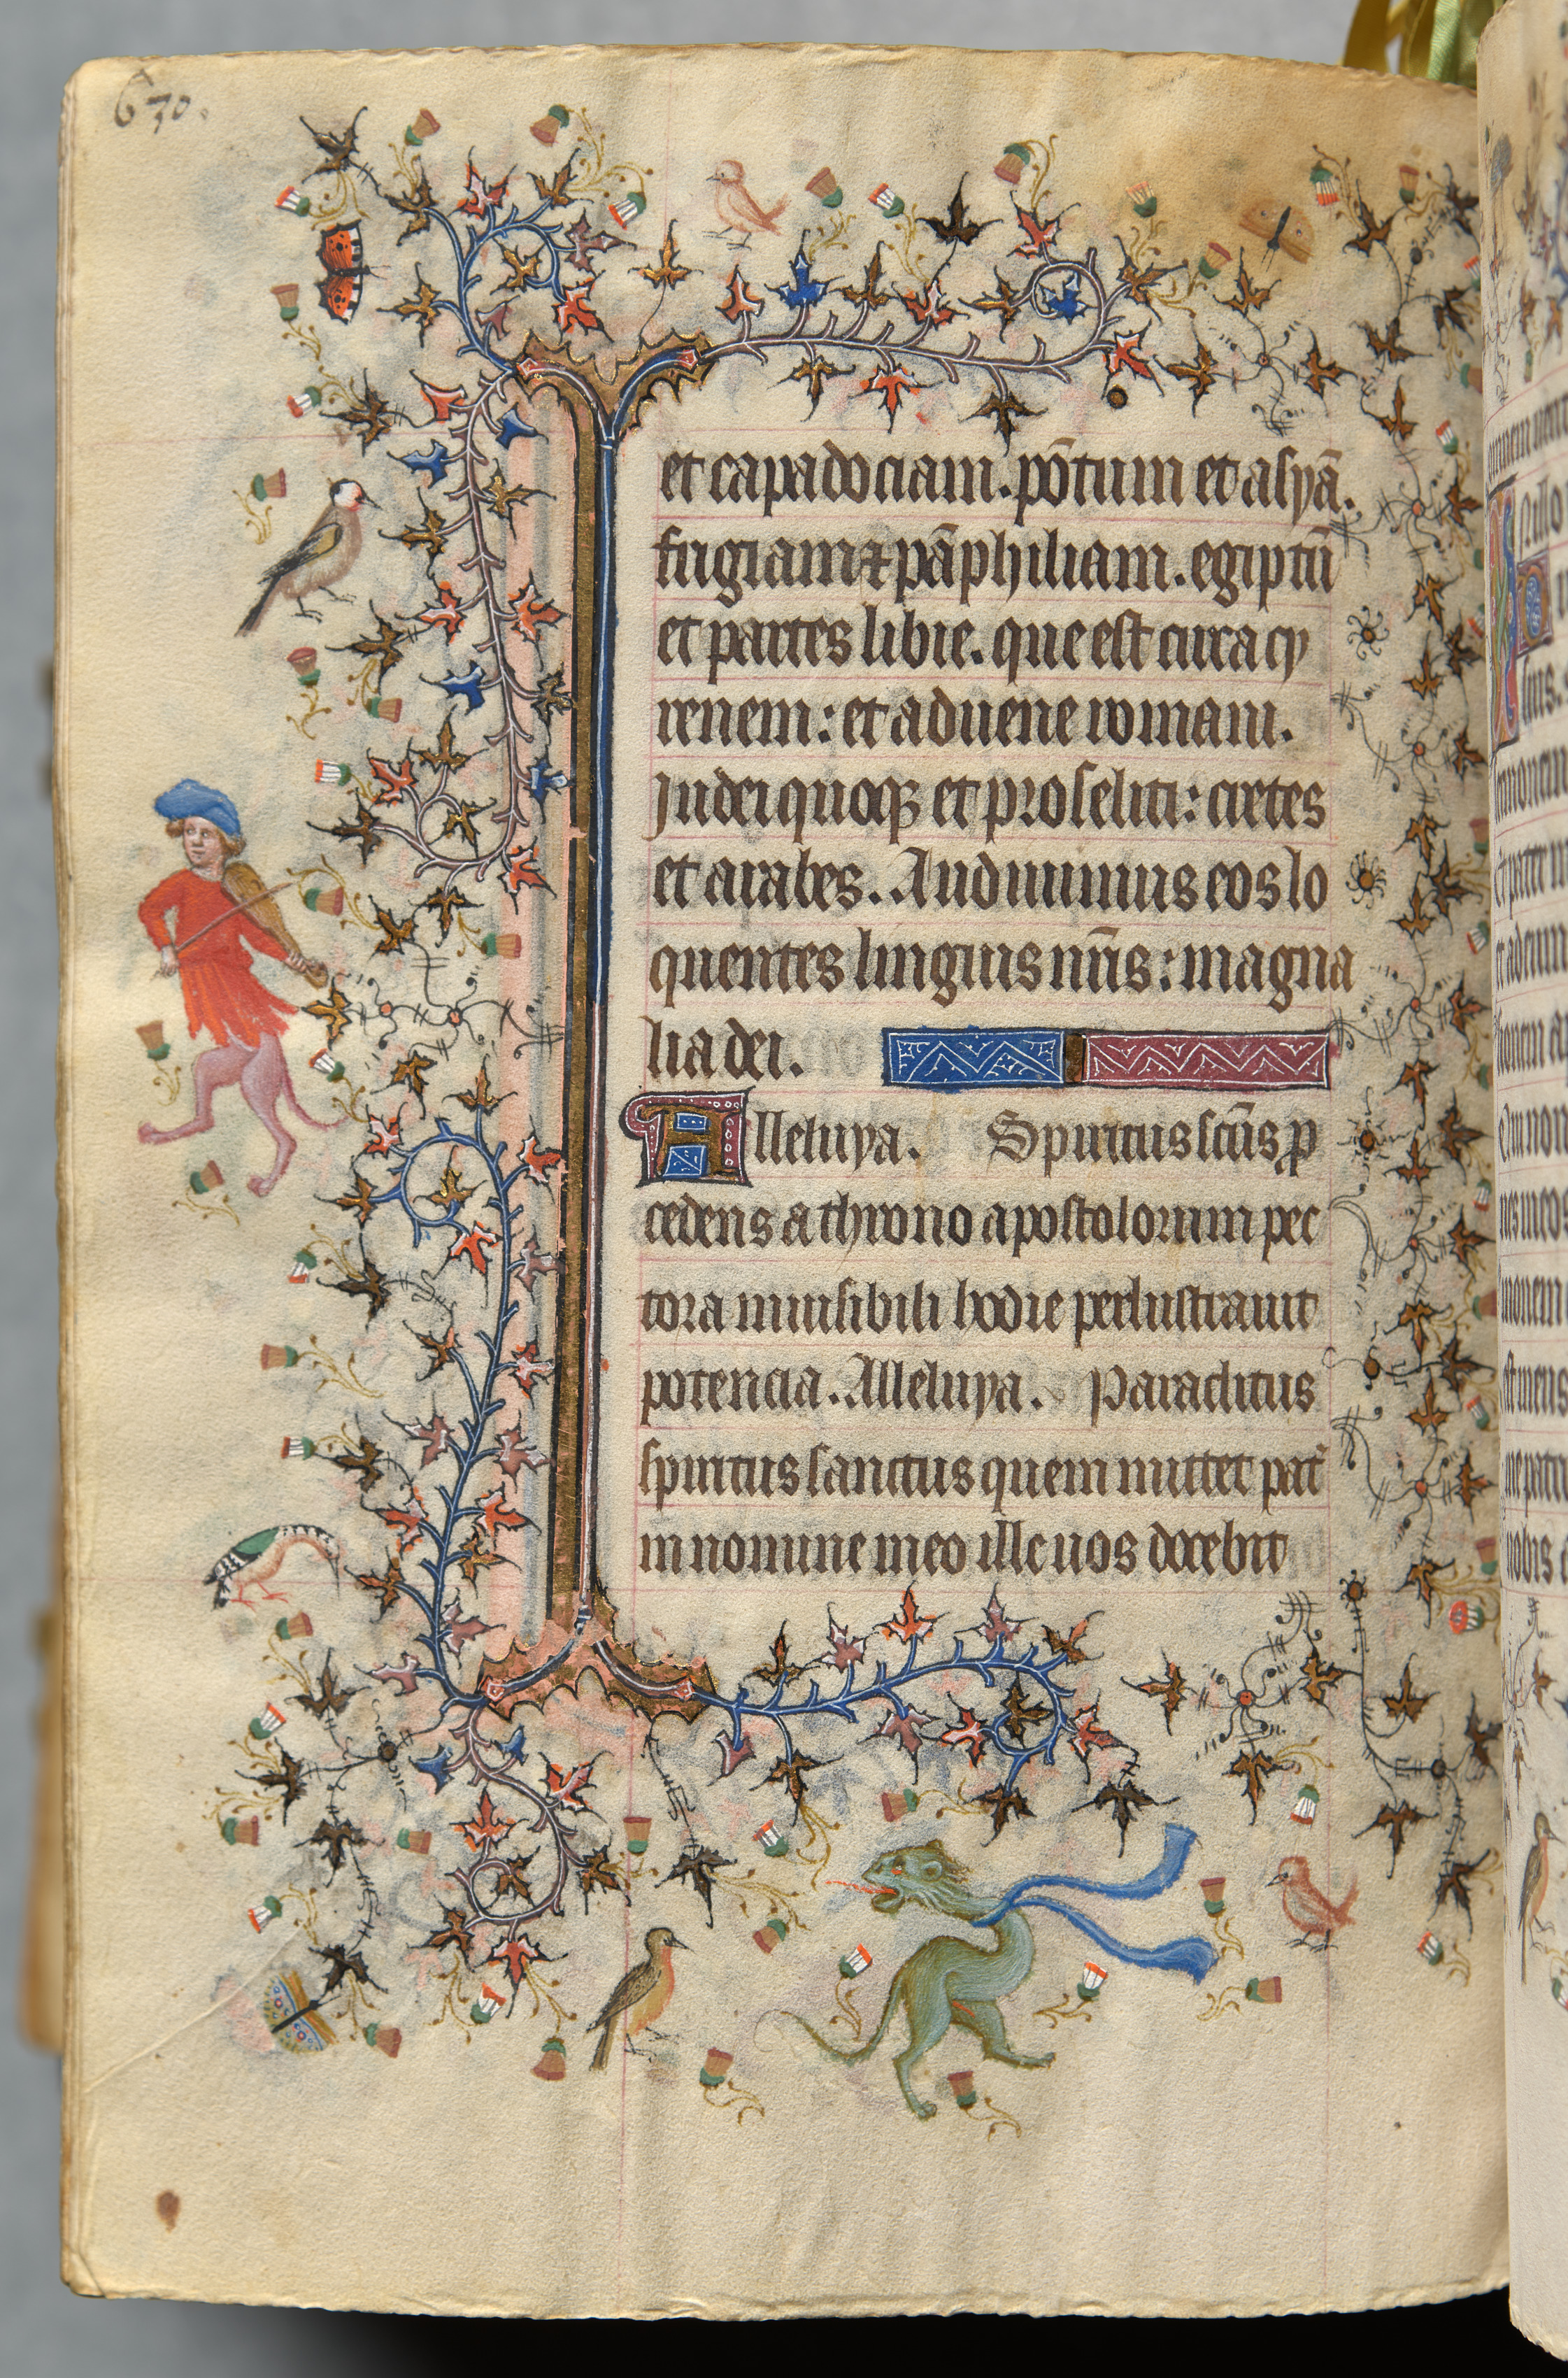 630.
et capadociam. põtum et asyã.
frigiam ⁊ pãphiliam. egiptũ
et partes libie. que est circa cy
renem: et aduene romani.
Judei quoqꝫ et proseliti: cretes
et arabes. Audiuimus eos lo
quentes linguis nr̃is: magna
lia dei.
Alleluya. Spiritus sc̃us ꝓ
cedens a throno apostolorum pec
tora inuisibili hodie perlustrauit
potencia. Alleluya. Paraclitus
spiritus sanctus quem mittet pat̃
in nomine meo ille uos docebit